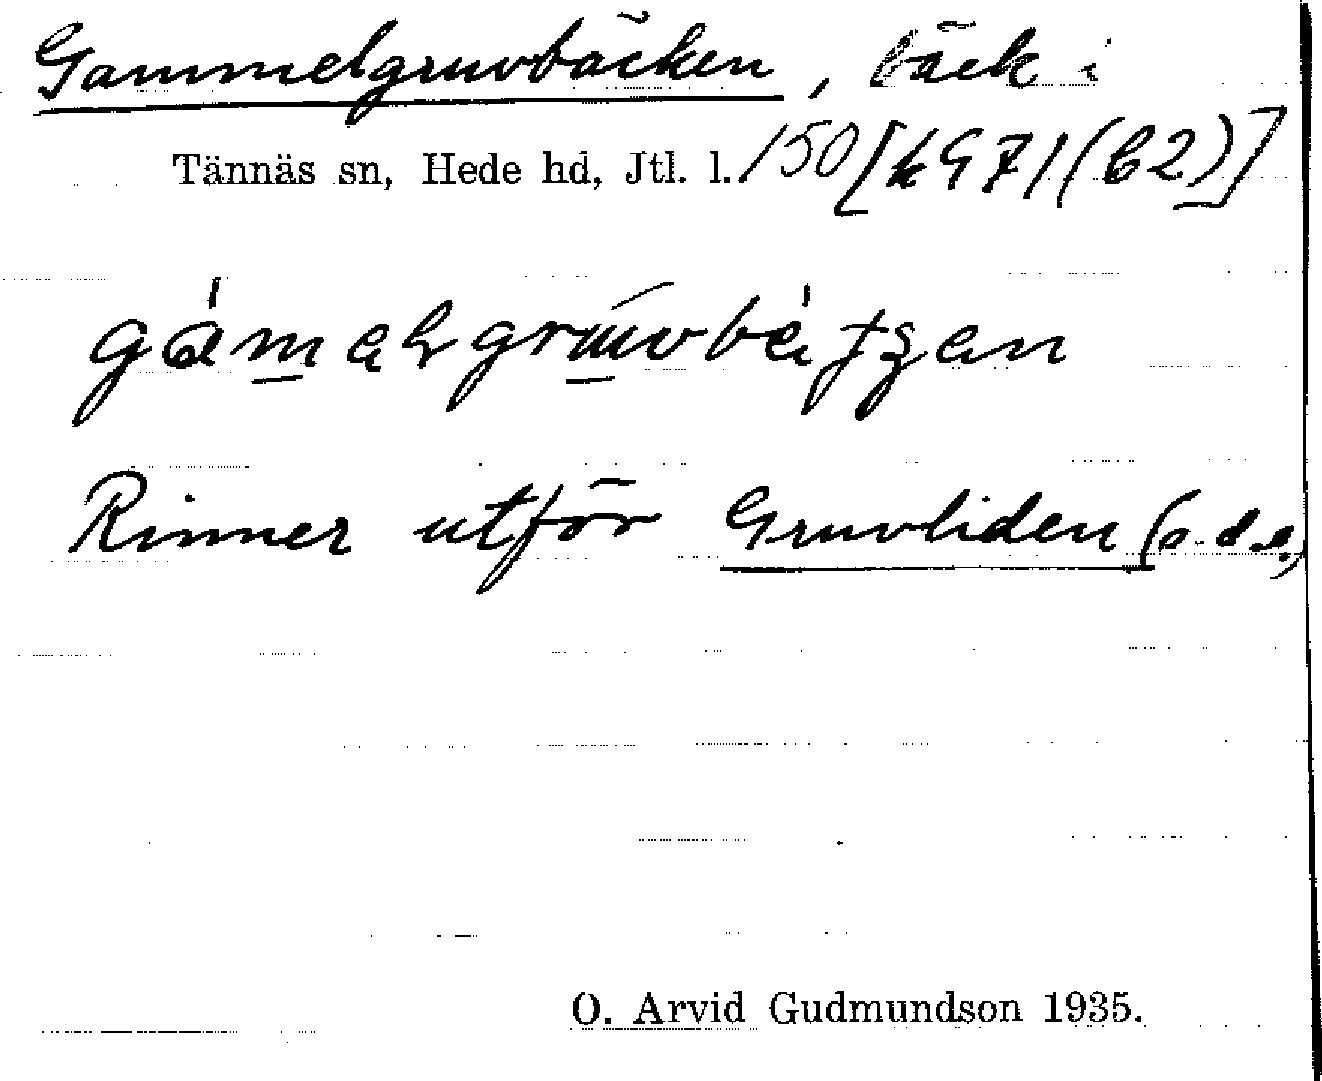 Gammelgruvbäcken, bäck i
Tännäs sn, Hede hd, Jtl. l. 150 [k971(b2)]
Rinner utför Gruvliden (s.d.e.)
O. Arvid Gudmundson 1935.